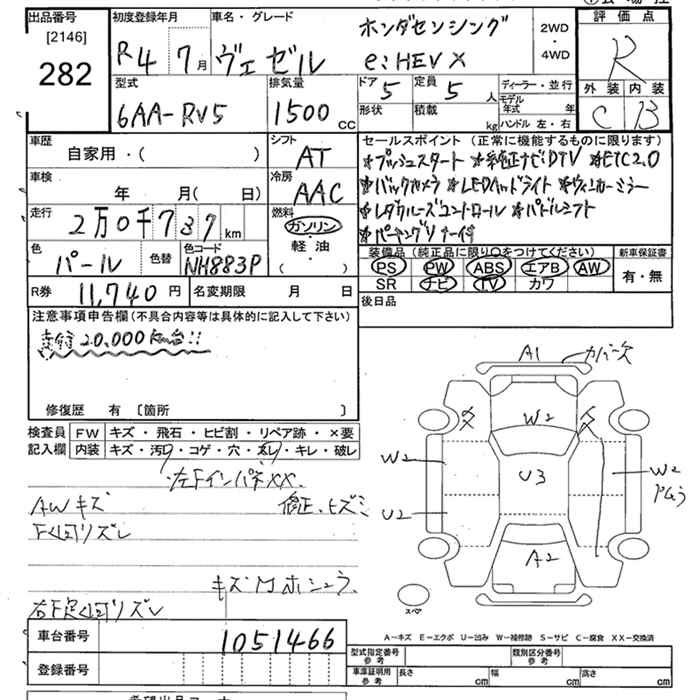 出品番号
[2146]
282
初度登録年月
R4年 7月
車名・グレード
ホンダセンシング
ヴェゼル e:HEV X
2WD
・
4WD
評価点
R
外装 内装
C B
型式
6AA-RV5
排気量
1500 cc
ドア 5
定員 5 人
形状
積載 kg
ディーラー・並行
モデル年式 年
ハンドル 左・右
車歴
自家用・( )
車検
年 月( 日)
走行
2万0千737 km
色
パール
色替
色コード
NH883P
シフト
AT
冷房
AAC
燃料
ガソリン
軽油
・
( )
セールスポイント (正常に機能するものに限ります)
*プッシュスタート *純正ナビDTV *ETC2.0
*バックカメラ *LEDヘッドライト *ウィンカーミラー
*レダクルーズコントロール *パドルシフト
*パーキング
装備品 (純正品に限り○をつけてください)
PS PW ABS エアB AW
SR ナビ TV カワ
新車保証書
有・無
R券 11,740 円
名変期限 月 日
後日品
注意事項申告欄(不具合内容等は具体的に記入して下さい)
走行20,000km台!!
修復歴 有 [箇所 ]
検査員
記入欄
FW キズ・飛石・ヒビ割・リペア跡・×要
内装 キズ・汚レ・コゲ・穴・太レ・キレ・破レ
左Fインパネ XX.
AWキズ 修正、ヒズミ
下回リズレ
右下定 回リズレ
A1 カバー欠
W2
W2
U3
W2
U2
A2
スペア
A-キズ E-エクボ U-凹み W-補修跡 S-サビ C-腐食 XX-交換済
車台番号 1051466
登録番号
型式指定番号
参考
類別区分番号
参考
車庫証明用
参考
長さ cm 幅 cm 高さ cm